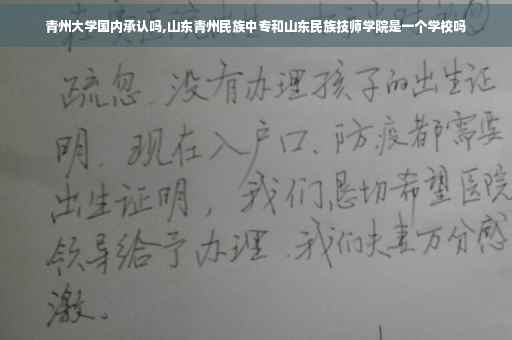 青州大学国内承认吗,山东青州民族中专和山东民族技师学院是一个学校吗
疏忽、没有办理孩子的出生证
明、现在入户口、防疫都需要
出生证明，我们恳切希望医院
领导给予办理、我们夫妻万分感
激。